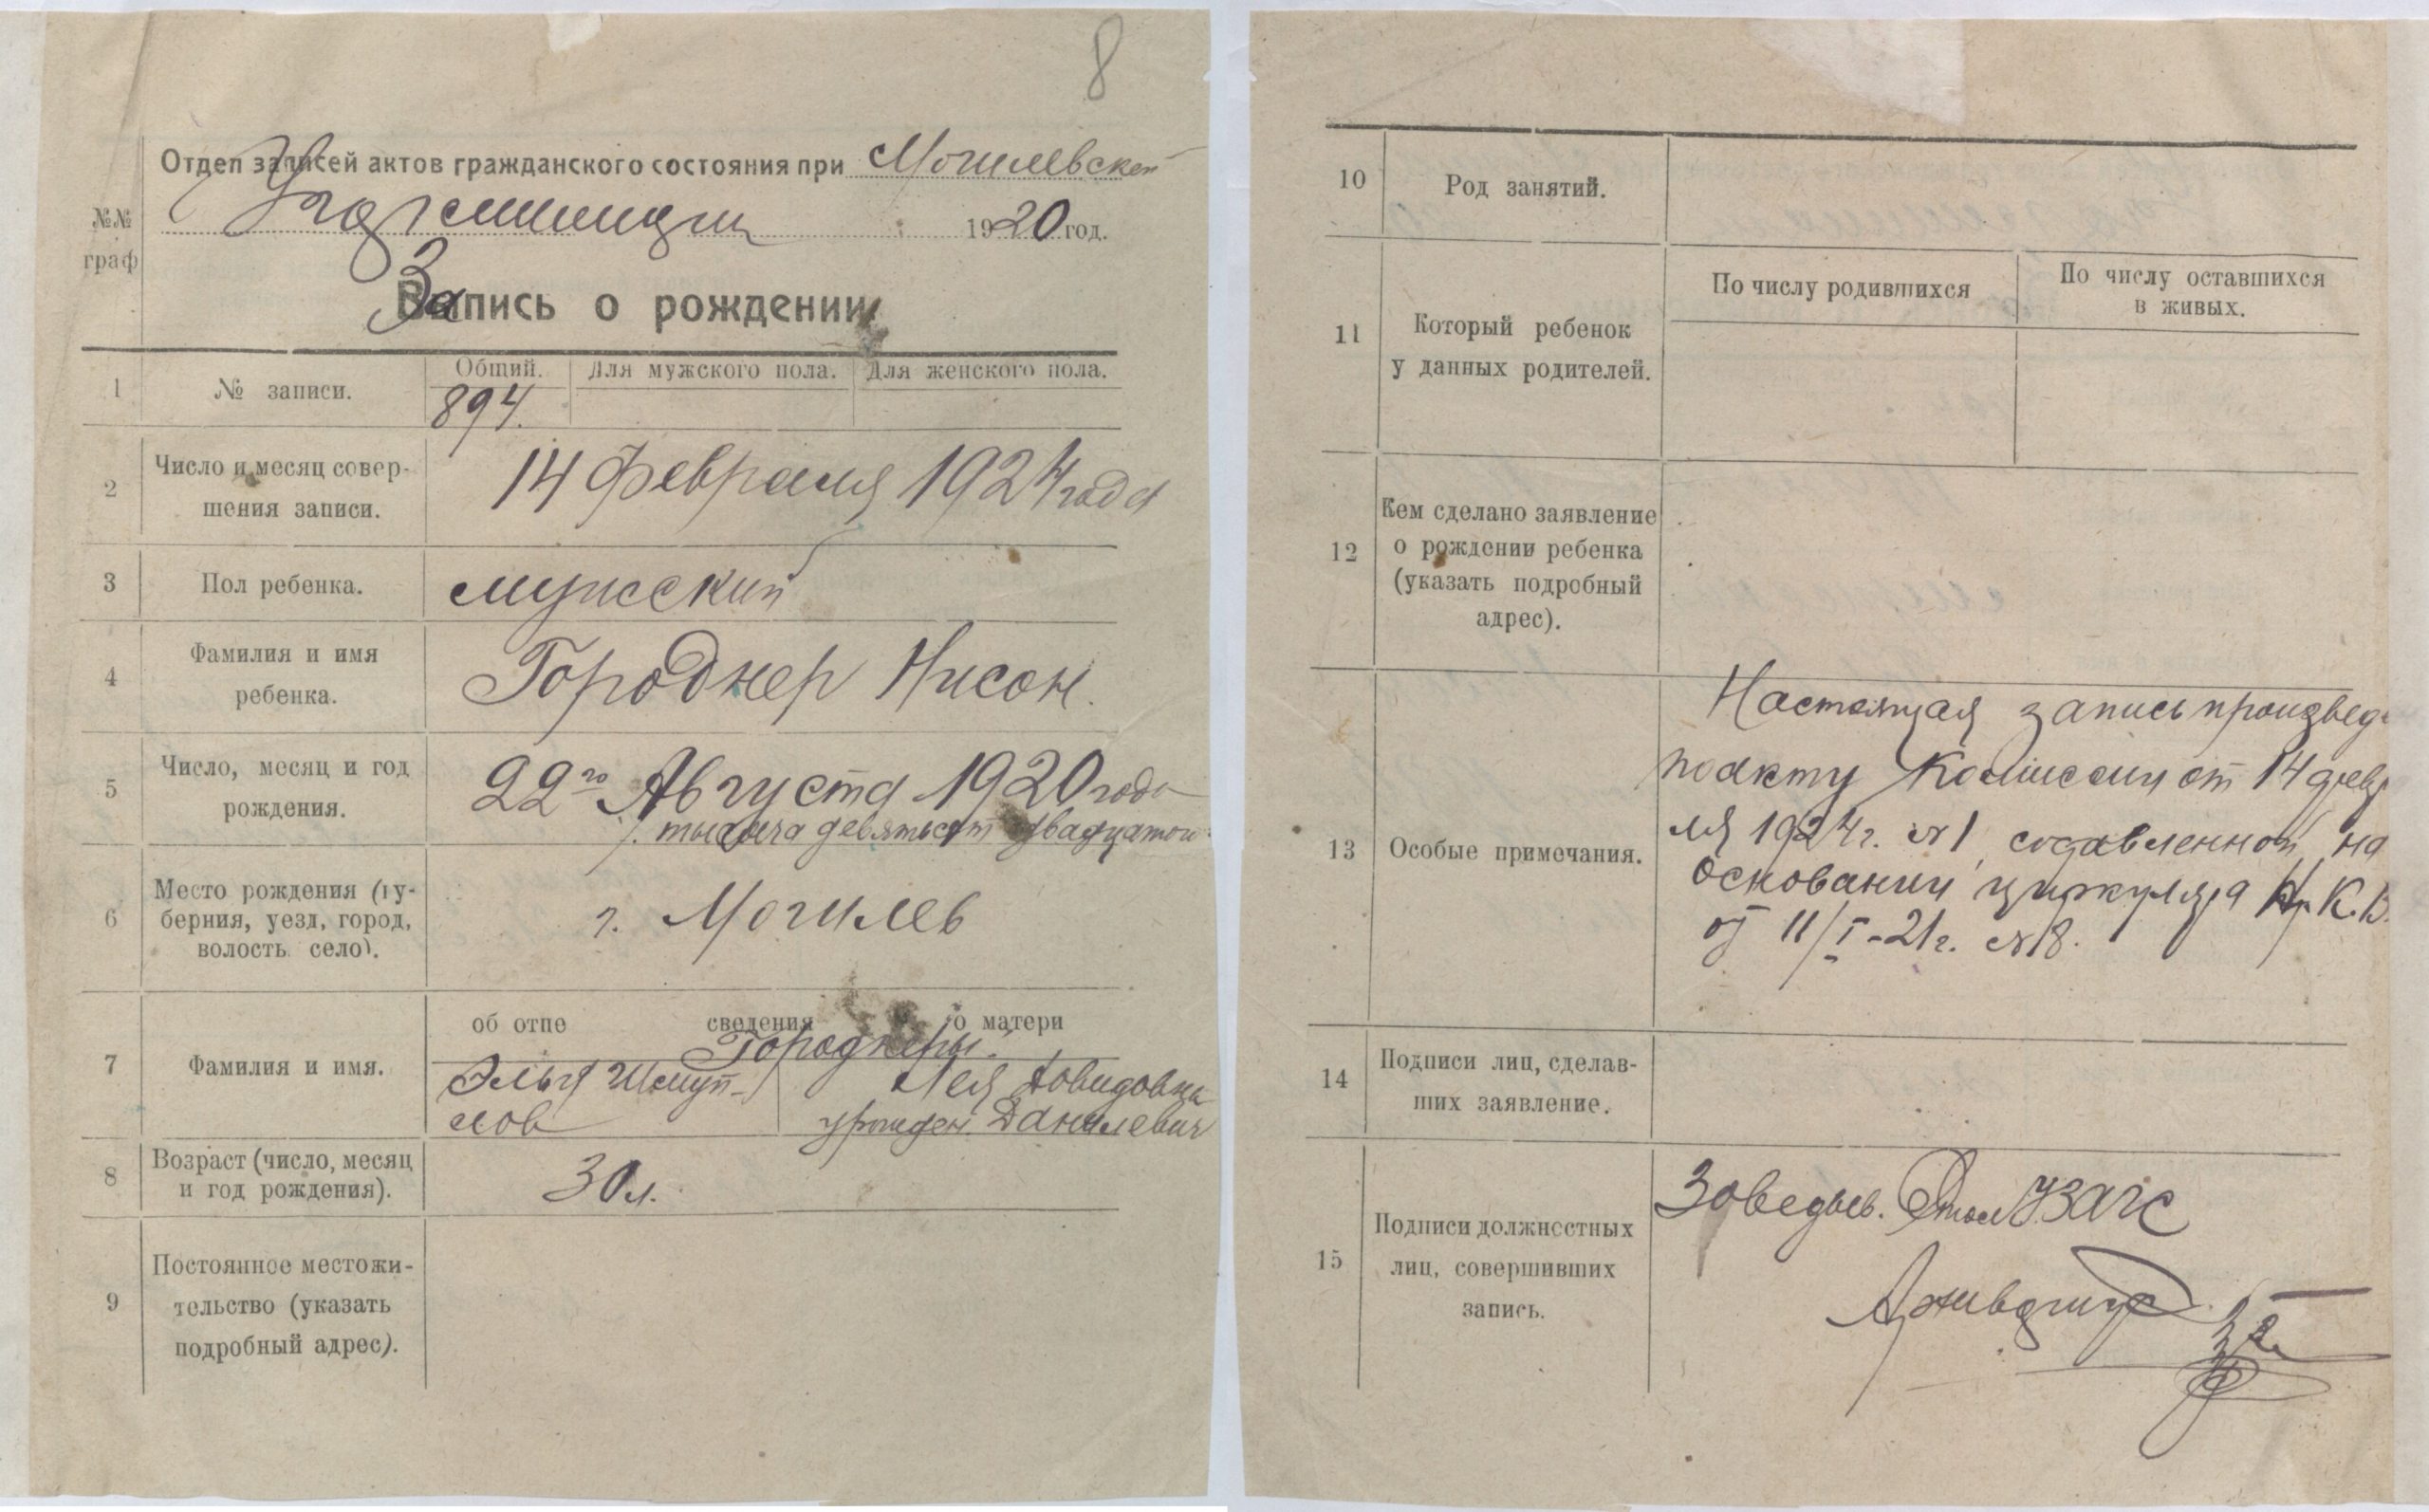 8
Отдел записей актов гражданского состояния при Могилевской
1920 год.
№№
граф
Запись о рождении
1
№ записи.
Общий.
Для мужского пола.
Для женского пола.
894.
2
Число и месяц совер-
шения записи.
14 Февраля 1924 года
3
Пол ребенка.
мужский
4
Фамилия и имя
ребенка.
Городнер Нисон.
5
Число, месяц и год
рождения.
22го Августа 1920 года
тысяча девятьсот двадцатого
6
Место рождения (гу-
берния, уезд, город,
волость село).
г. Могилев
7
Фамилия и имя.
об отце
сведения
о матери
Городнеры.
Элья Шмуй-
лов
Лея Довидовна
урожден. Данилевич
8
Возраст (число, месяц
и год рождения).
30 л.
9
Постоянное местожи-
тельство (указать
подробный адрес).
10
Род занятий.
11
Который ребенок
у данных родителей.
По числу родившихся
По числу оставшихся
в живых.
12
Кем сделано заявление
о рождении ребенка
(указать подробный
адрес).
13
Особые примечания.
Настоящая запись произвед
по акту Комиссии от 14 февр
ля 1924 г. №1, составленной на
основании циркуляра К.В.
от 11/I-21г. №18.
14
Подписи лиц, сделав-
ших заявление.
15
Подписи должностных
лиц, совершивших
запись.
Заведыв. УЗАГС